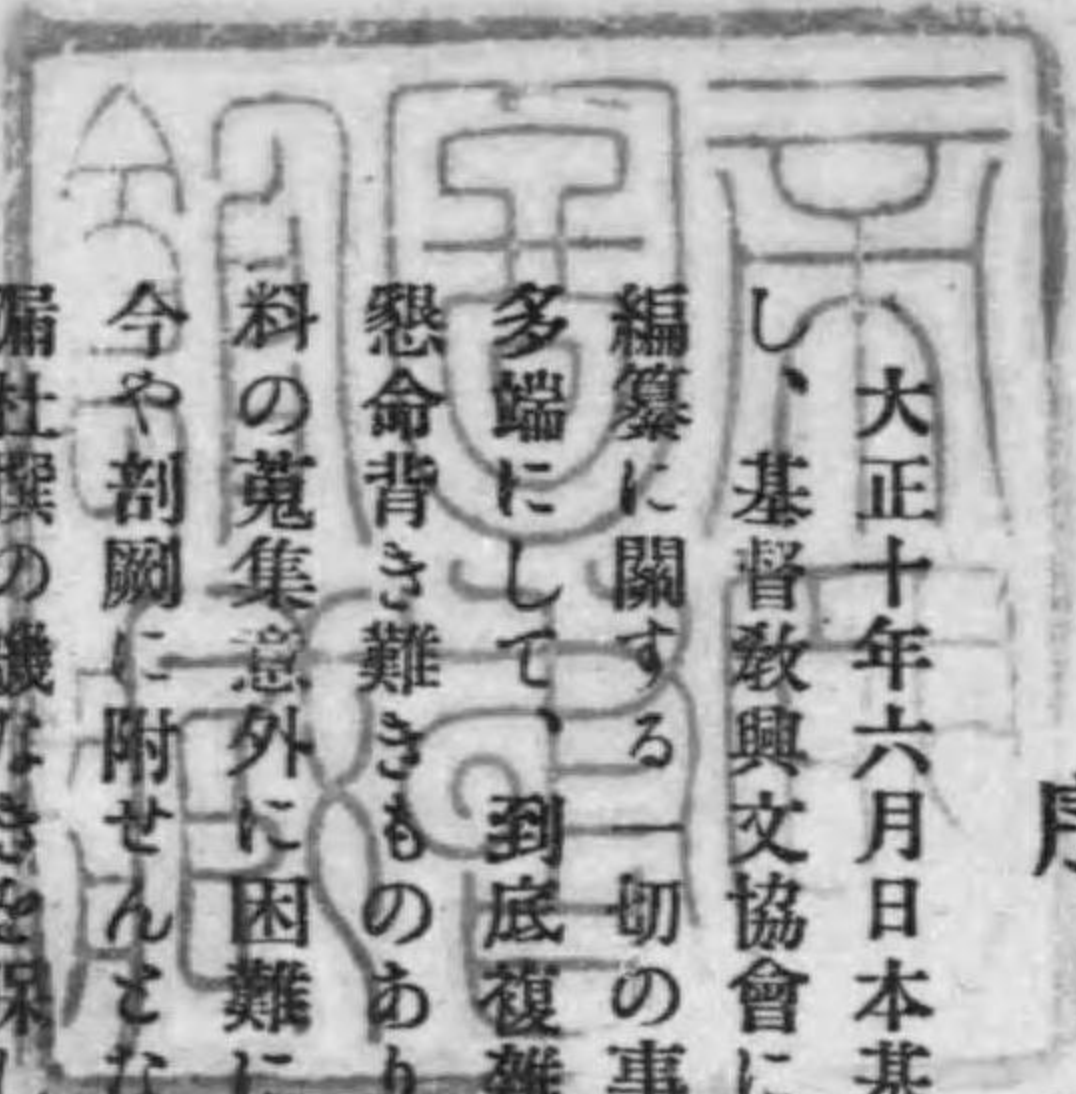 序
大正十年六月日本基
し、基督教興文協會に
編纂に關する一切の事
多端にして、到底複雜
懇命背き難きものあり
料の蒐集意外に困難に
今や剖劂に附せんとな
漏杜撰の譏なきを保し